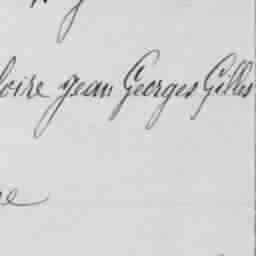 loire jean Georges Gilles